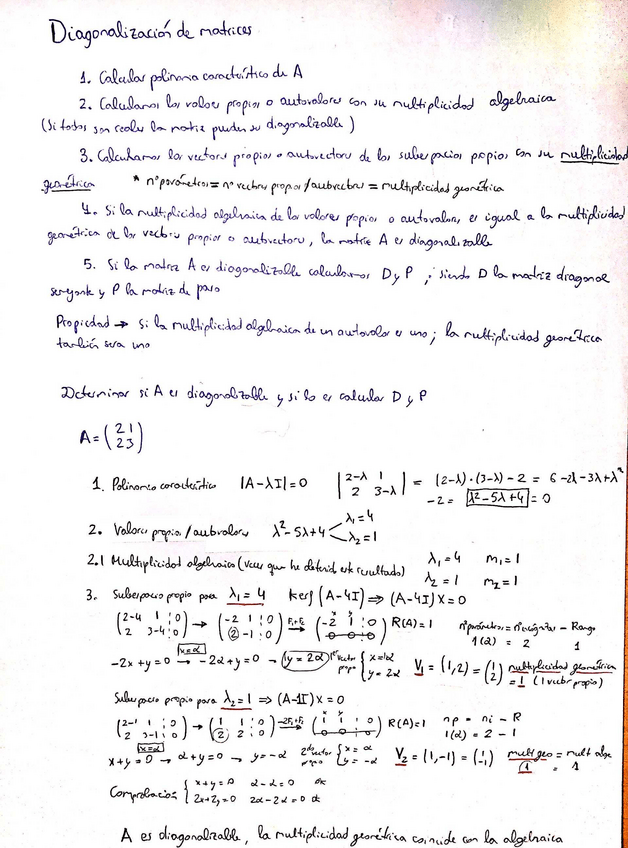 Diagonalización de matrices
1. Calcular polinomio característico de A
2. Calculamos los valores propios o autovalores con su multiplicidad algebraica
(Si todos son reales la matriz puede ser diagonalizable)
3. Calculamos los vectores propios o autovectores de los subespacios propios con su multiplicidad
geométrica * nº parámetros = nº vectores propios / autovectores = multiplicidad geométrica
4. Si la multiplicidad algebraica de los valores propios o autovalores, es igual a la multiplicidad
geométrica de los vectores propios o autovectores, la matriz A es diagonalizable
5. Si la matriz A es diagonalizable calculamos D y P ; siendo D la matriz diagonal
semejante y P la matriz de paso
Propiedad → Si la multiplicidad algebraica de un autovalor es uno; la multiplicidad geométrica
también sera uno
Determinar si A es diagonalizable y si lo es calcular D y P
A = (2 1
2 3)
1. Polinomio característico |A-λI|=0 |2-λ 1 ; 2 3-λ| = (2-λ)·(3-λ) - 2 = 6-2λ-3λ+λ²
-2 = λ²-5λ+4 = 0
2. Valores propios/autovalores λ²-5λ+4 λ₁=4 λ₂=1
2.1 Multiplicidad algebraica (veces que he obtenido este resultado) λ₁=4 m₁=1
λ₂=1 m₂=1
3. Subespacio propio para λ₁=4 Ker (A-4I) ⟹ (A-4I)X=0
(2-4 1 ¦ 0 ; 2 3-4 ¦ 0) → (-2 1 ¦ 0 ; 2 -1 ¦ 0) F₁+F₂ → (-2 1 ¦ 0 ; 0 0 0) R(A)=1 nº parámetros = nº incógnitas - Rango
1(α) = 2 1
-2x+y=0 x=α → -2α+y=0 → y=2α 1er vector propio { x=1α y=2α V₁=(1,2)=(1 2) multiplicidad geométrica
=1 (1 vector propio)
Subespacio propio para λ₂=1 ⟹ (A-1I)X=0
(2-1 1 ¦ 0 ; 2 3-1 ¦ 0) → (1 1 ¦ 0 ; 2 2 ¦ 0) -2F₁+F₂ → (1 1 ¦ 0 ; 0 0 0) R(A)=1 np = ni - R
1(α) = 2 - 1
x=α
x+y=0 → α+y=0 → y=-α 2º vector propio { x=α y=-α V₂=(1,-1)=(1 -1) mult geo = mult alge
1 1
Comprobación { x+y=0 α-α=0 ok
2x+2y=0 2α-2α=0 ok
A es diagonalizable, la multiplicidad geométrica coincide con la algebraica